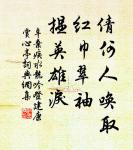 倩何人唤取
红巾翠袖
揾英雄泪
辛弃疾水龙吟登建康
赏心亭词典网集